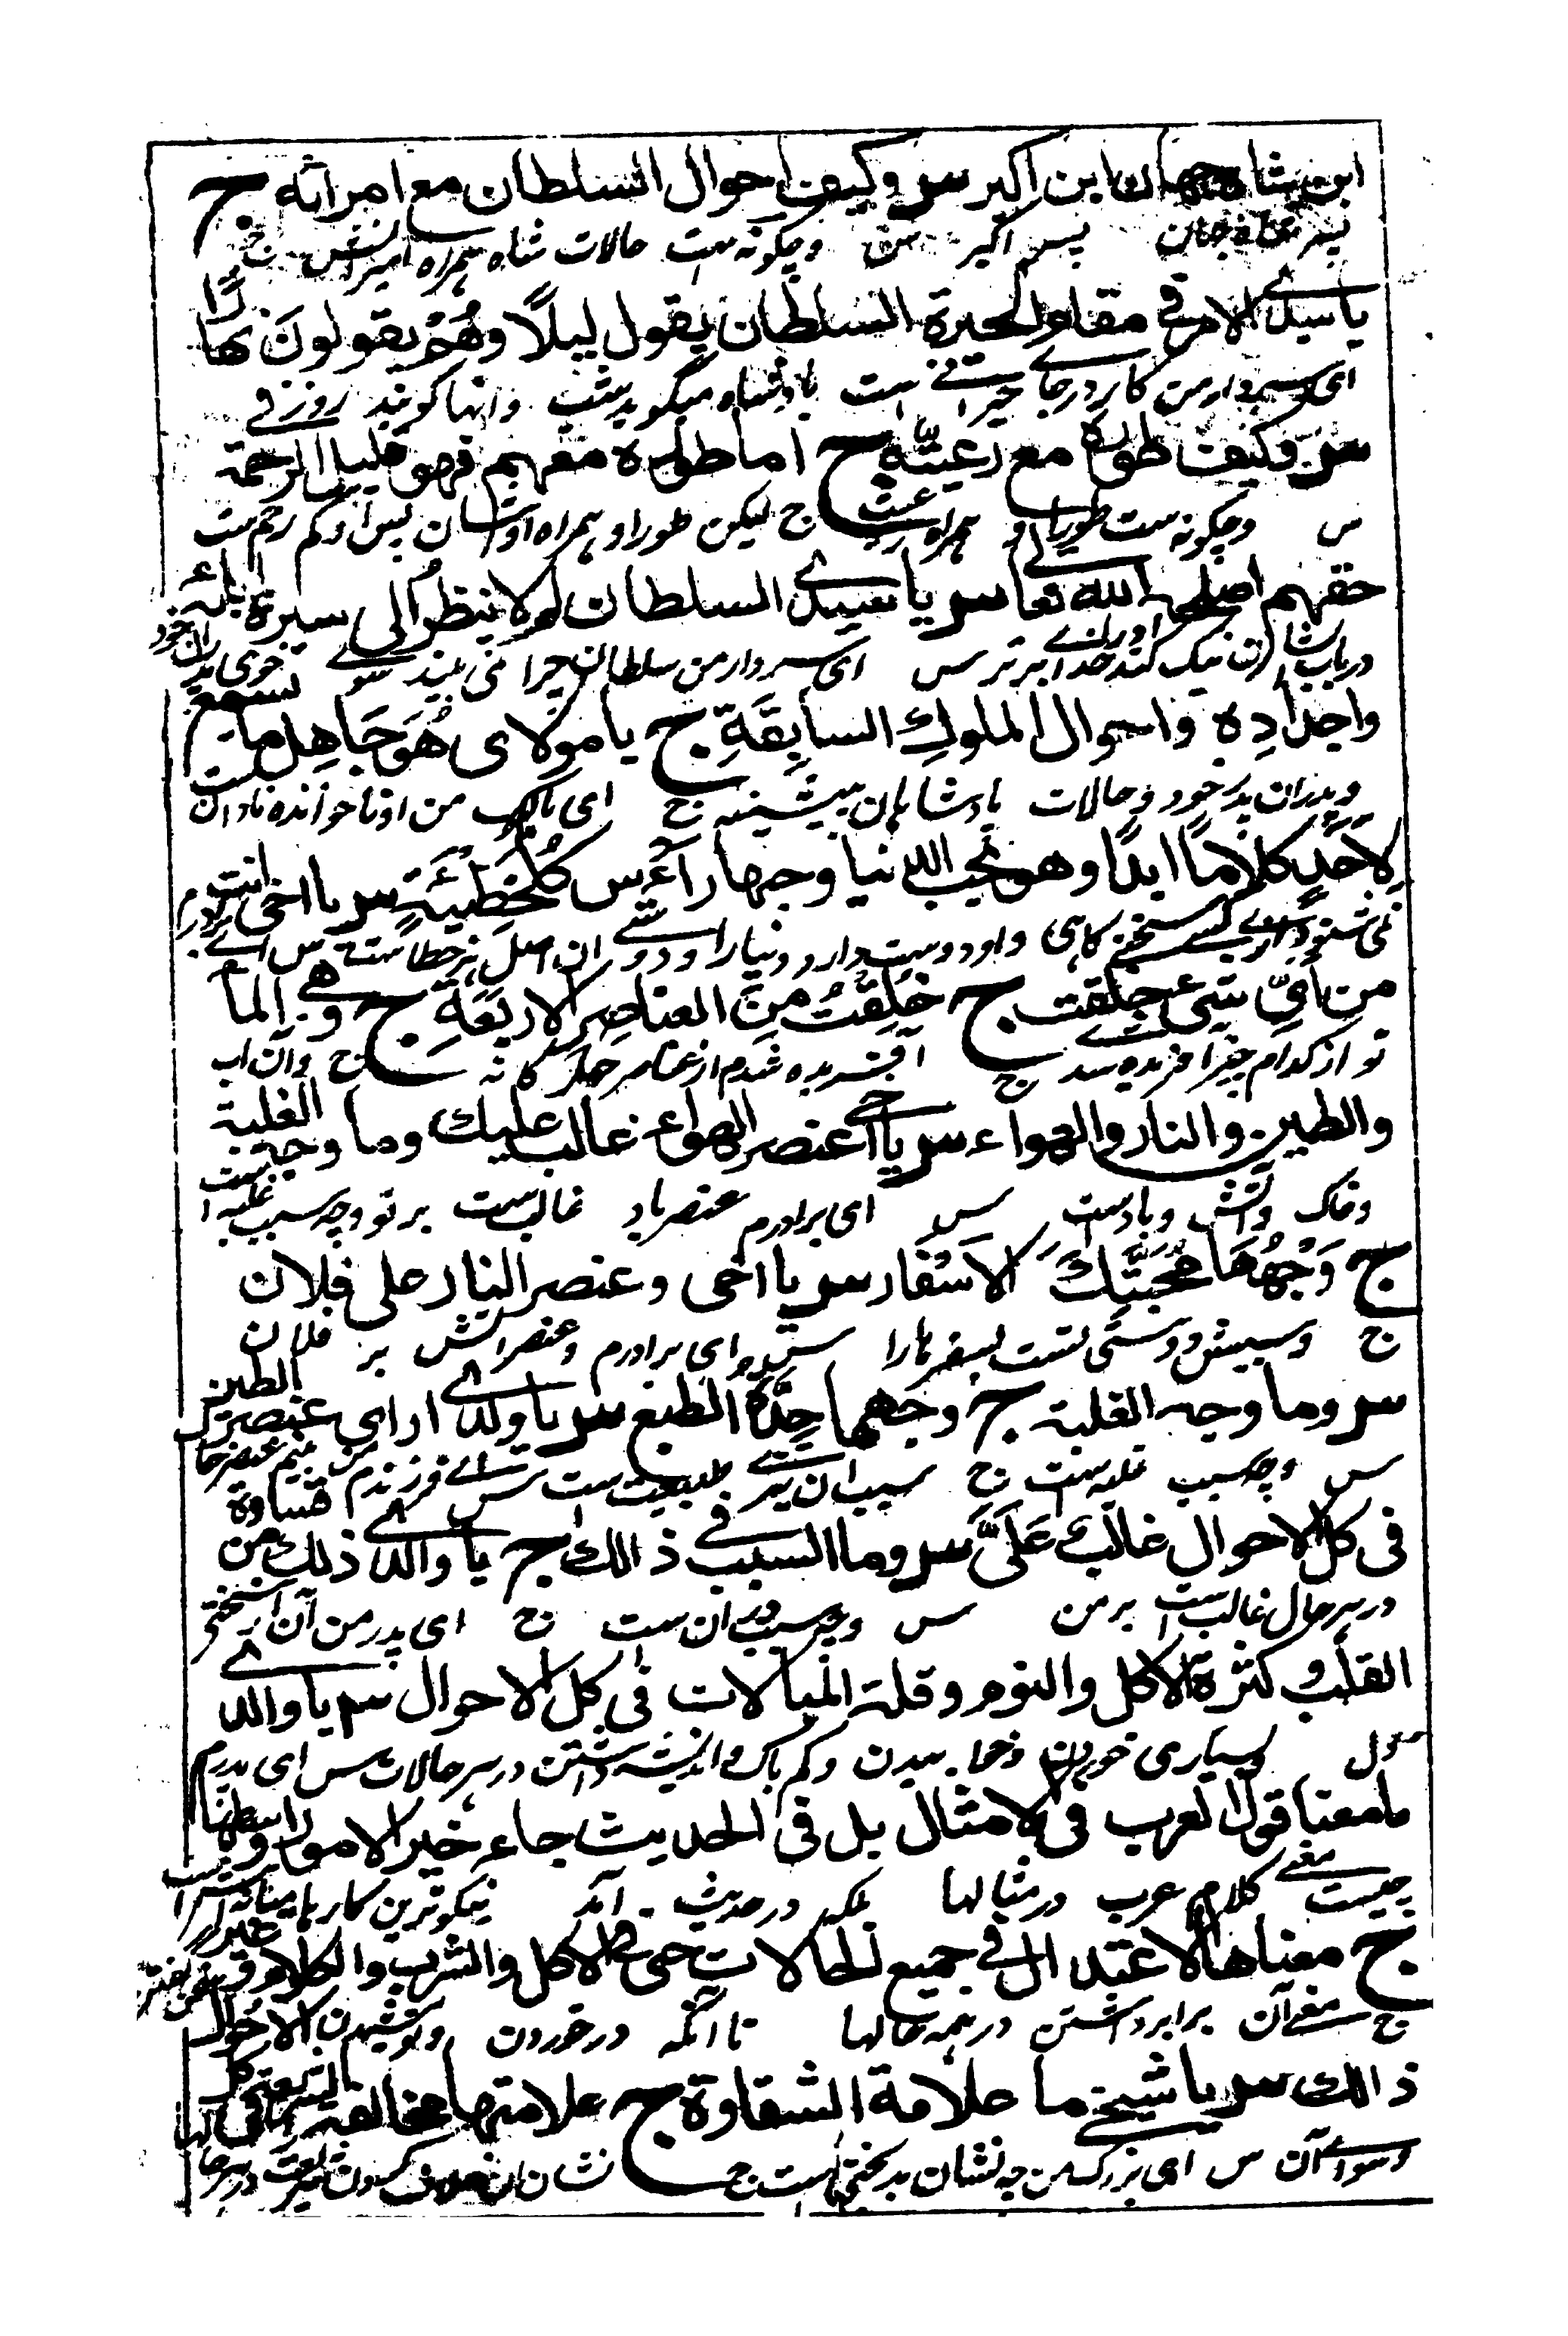 ابن شاه جهان ابن اكبر س وكيف احوال السلطان مع امرائه ج
پسر شاه جهان پسر اکبر س وچگونه است حالات شاه همراه امیرانش ج
يا سيدي الامر في مقام الحيرة السلطان يقول ليلًا وهُمْ يقولونَ نهارًا
ای سردار من کار در جای حیرانی است بادشاه میگوید شب وانها گویند روز
س وكيف طوره مع رعيته ج اما طوره معهم فهو قليل الرحمة
س وچگونه ست طور او همراه رعیت ج لیکن طور او همراه اوشان پس او کم رحم ست
حقهم اصلحه الله تعالى س يا سيدي السلطان لم لا ينظر الى سيرة ابائه
درباب شان نیک کند خدا برتر س ای سردار من سلطان چرا نمی بیند سوی خوی پدران خود
واجدادِه واحوال الملوكِ السابِقَةِ ج يا مولاى هُوَ جَاهِل ما يسمع
وپدران پدر خود وحالات بادشاهان پیشینه ج ای مالک من او ناخوانده نادان ست
لِاَحَدٍ كلامًا ابدًا وهو يحب الدنيا وحبها رأس كُل خَطِيئَةٍ س يا اخى انت
نمی شنود کسی سخن گاهی واو دوست دارد دنیا را ودوستی ان اصل هر خطاست س ای برادرم
من اَىِّ شيء خلقت ج خُلِقْتُ مِنَ العناصِرِ الاربَعَةِ ج وهي الماء
تو از کدام چیز افریده شد ج آفریده شدم از عناصر چهارگانه ج وآن اب
والطين والنار والهواء س يا اخي عنصر الهواء غالب عليك وما وجه الغلبة
وخاک واتش وبادست س ای برادرم عنصر باد غالب ست بر تو وچه سبب غلبه است
ج وَجْهُهَا مُحبَّتُكَ الاسْفار س يا اخى وعنصر النار على فلان
ج وسببش دوستی تست بسفرها را س ای برادرم وعنصر اتش بر فلان
س وما وجه الغلبة ج وجهها حِدَّةُ الطبع س يا ولدي ارى عنصر الطين
س وچه سبب غلبه ست ج سبب ان تیزی طبیعت ست س ای فرزندم من بینم عنصر خاک
فى كل الاحوال غالبٌ عَلَىَّ س وما السبب في ذالك ج يا والدي ذلك من قساوة
در هر حال غالب ست بر من س وچه سبب در ان ست ج ای پدر من آن از سختی
القلب وكثرة الاكل والنوم وقلة المبالات فى كل الاحوال س يا والدي
دل وبسیاری خوردن وخوابیدن وکم باک واندیشه داشتن در هر حالات س ای پدرم
ما معنا قول العرب فى الامثال بل فى الحديث جاء خير الامور اوسطها
چیست معنی کلام عرب در مثالها بلکه در حدیث آمد نیکوترین کارها میانه
ج معناها الاعتدال في جميع الحالات حتى في الاكل والشرب والكلام وغير
ج معنی آن برابر داشتن در همه حالها تا انکه در خوردن ونوشیدن الاحوال
ذالك س يا شيخي ما علامة الشقاوة ج علامتها مخالفة الشريعة في كل
وسوای آن س ای بزرگ من چه نشان بدبختی است ج نشان ان خلاف کردن شریعت در هر